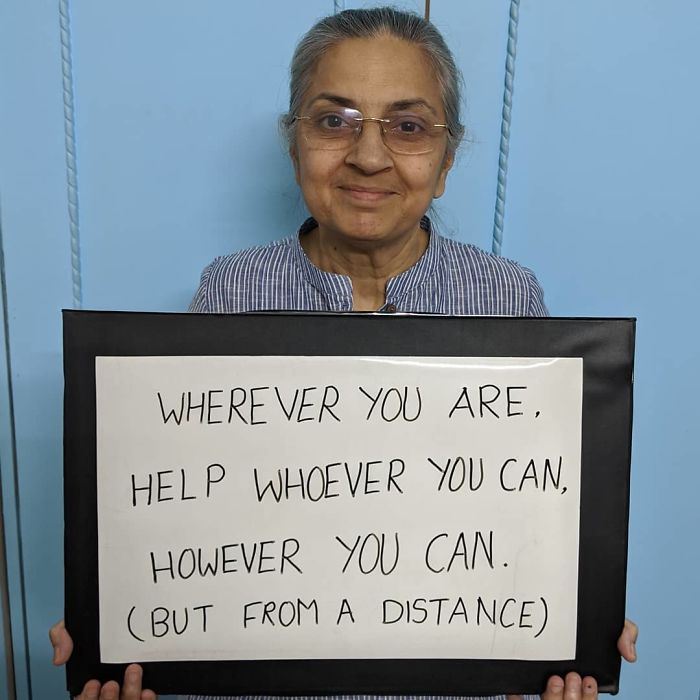 WHEREVER YOU ARE,
HELP WHOEVER YOU CAN,
HOWEVER YOU CAN.
(BUT FROM A DISTANCE)